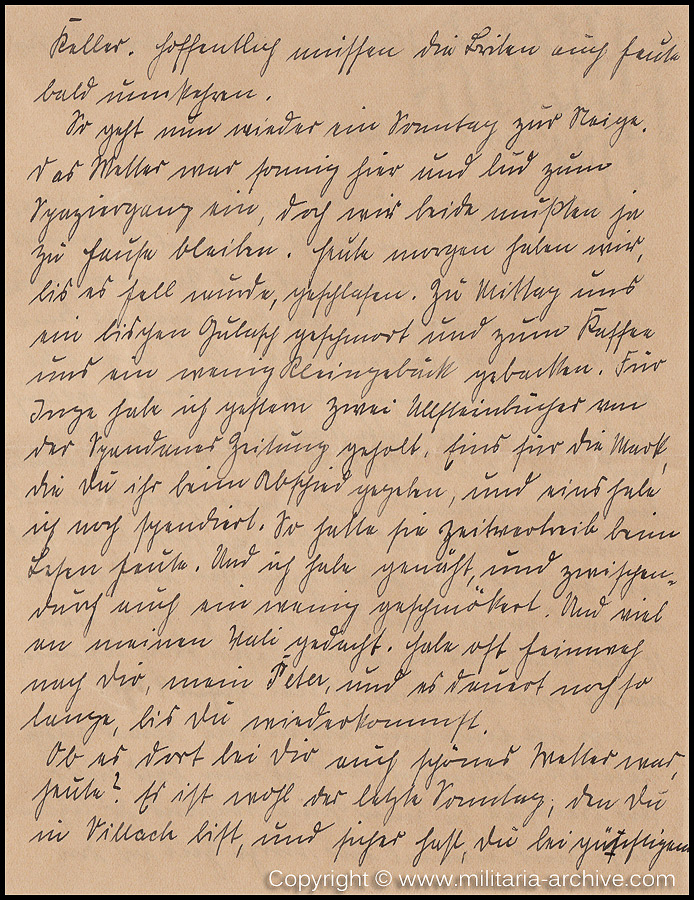 Keller. Hoffentlich müssen die Briten auch heute
bald umkehren.
So geht nun wieder ein Sonntag zur Neige.
Das Wetter war sonnig hier und lud zum
Spaziergang ein, doch wir beide mußten ja
zu Hause bleiben. Heute morgen haben wir,
bis es hell wurde, geschlafen. Zu Mittag uns
ein bischen Gulasch geschmort und zum Kaffee
uns ein wenig Kleingebäck gebacken. Für
Inge habe ich gestern zwei Ullsteinbücher von
der Spandauer Zeitung geholt. Eins für die Mark,
die Du ihr beim Abschied gegeben, und eins habe
ich noch spendiert. So hatte sie Zeitvertreib beim
Lesen heute. Und ich habe genäht, und zwischen-
durch auch ein wenig geschmökert. Und viel
an meinen Vati gedacht. Habe oft Heimweh
nach Dir, mein Peter, und es dauert noch so
lange, bis Du wiederkommst.
Ob es dort bei Dir auch schönes Wetter war,
heute? Es ist wohl der letzte Sonntag, den Du
in Villach bist, und sicher hast, Du bei günstigem
Copyright © www.militaria-archive.com